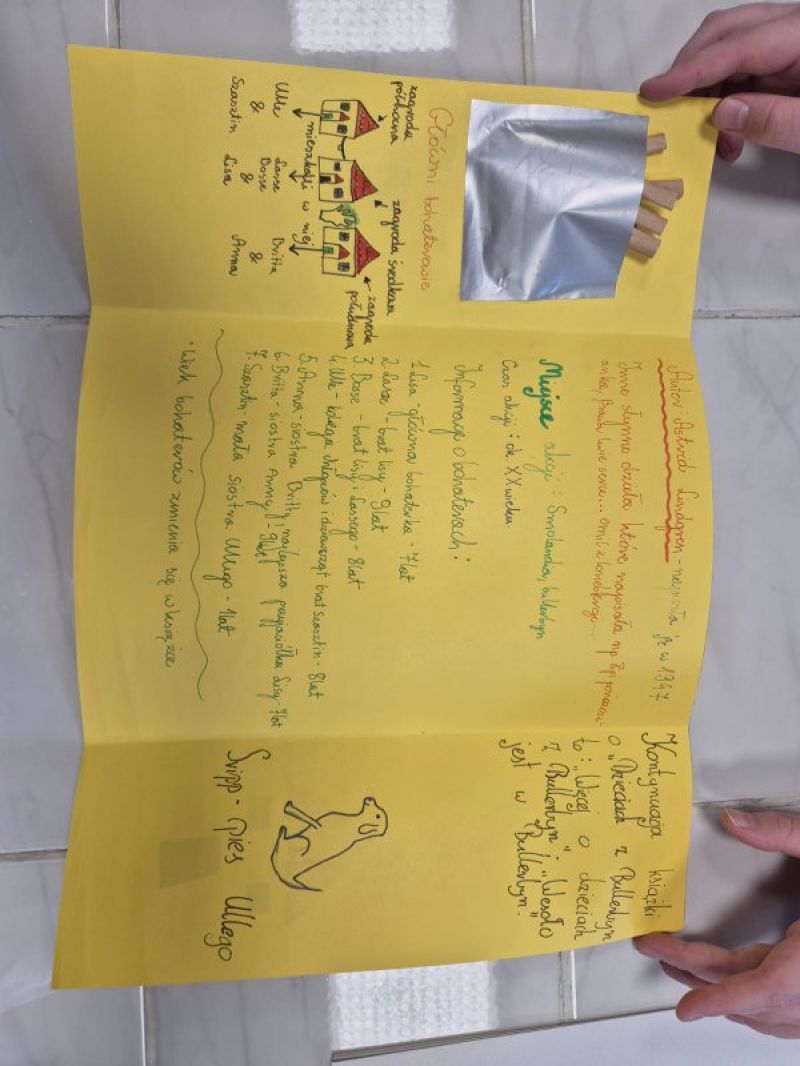 Główni bohaterowie
zagroda
północna
zagroda środkowa
zagroda
południowa
mieszkali w niej
Ulle
&
Szasztin
Lasse
Bosse
Lisa
Britta
&
Anna
Autor: Astrid Lindgren - napisała je w 1947
Inne słynne dzieła które napisała np Pipi
Bracia lwie serce... emil z lonebergi...
Miejsce akcji: Smolandia, bullerbyn
Czas akcji: ok. XX wieku.
Informacje o bohaterach:
1. Lisa - główna bohaterka - 7lat
2 Lasse - brat lisy - 9lat
3 Bosse - brat lisy i Lassego - 8lat
4. Ulle - kolega chłopców i dziewcząt brat Szasztin - 8lat
5. Anna - siostra Britty, najlepsza przyjaciółka Lisy - 7lat
6. Britta - siostra Anny - 9lat
7. Szasztin - mała siostra Ullego - 1lat
• Wiek bohaterów zmienia się w książce
Kontynuacja książki
o „Dzieciach z Bullerbyn
to: „Więcej o dzieciach
z Bullerbyn" i „Wesoło
jest w Bullerbyn".
Svipp - pies Ullego